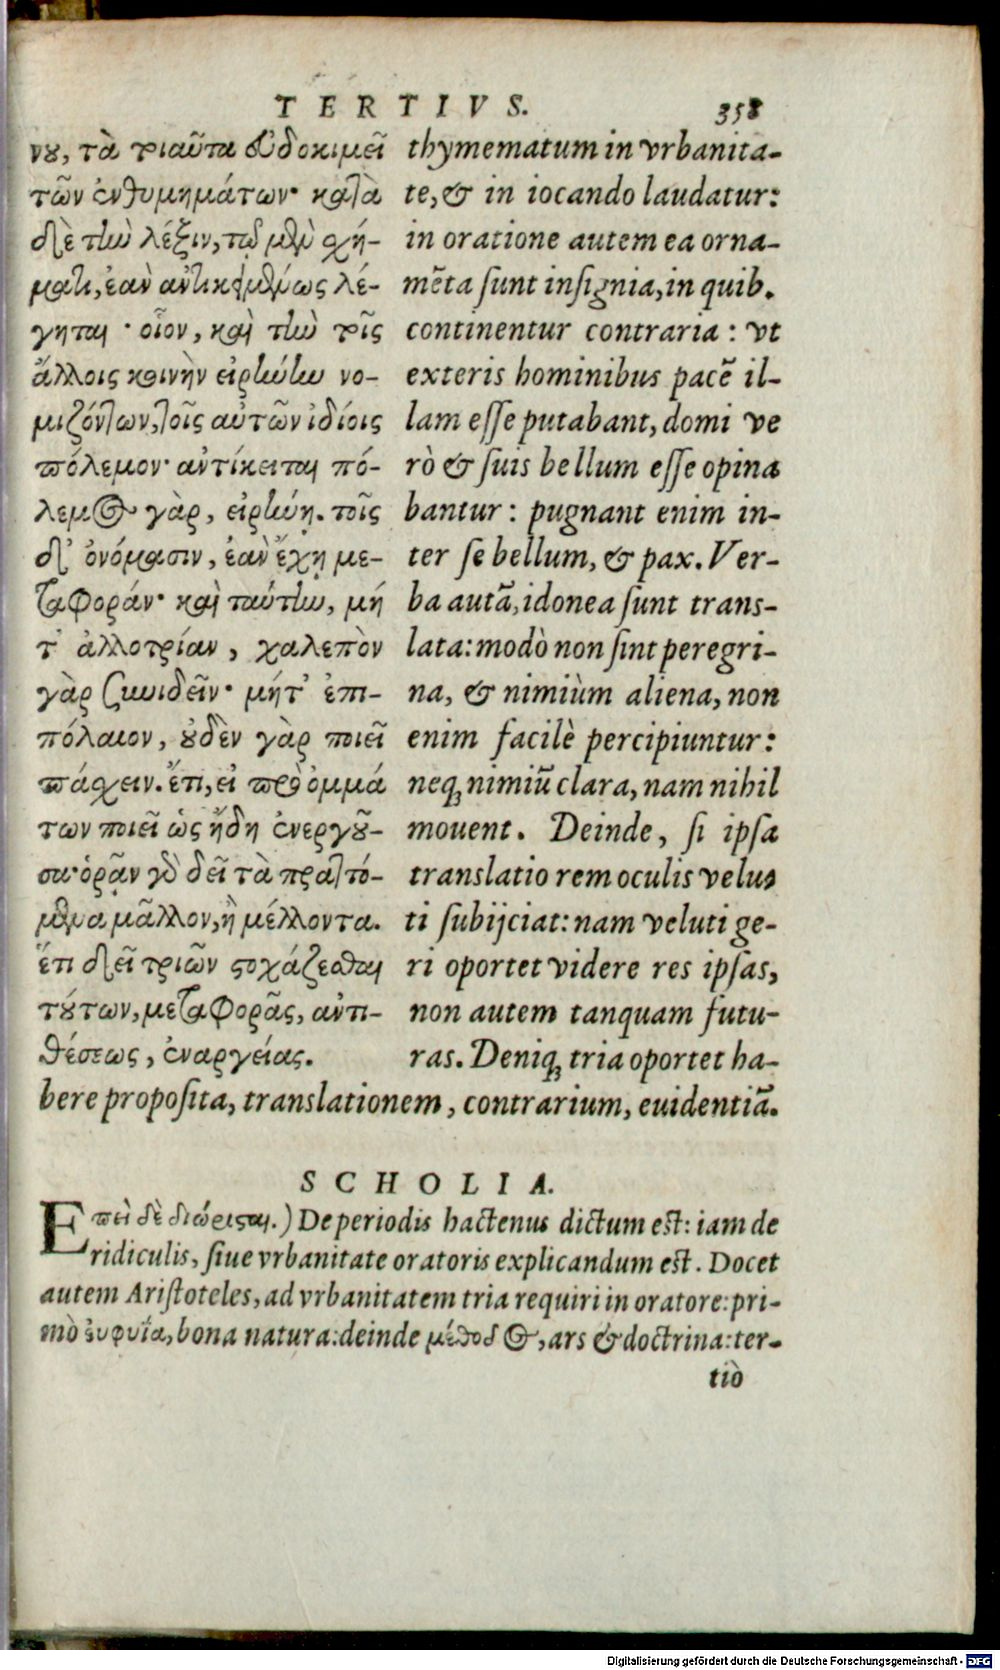 TERTIVS. 358
νου, τὰ τοιαῦτα εὐδοκιμεῖ
τῶν ἐνθυμημάτων· κατὰ
δὲ τὴν λέξιν, τῷ μὲν σχή-
ματι, ἐὰν ἀντικειμένως λέ-
γηται· οἷον, καὶ τὴν τοῖς
ἄλλοις κοινὴν εἰρήνην νο-
μιζόντων, τοῖς αὑτῶν ἰδίοις
πόλεμον· ἀντίκειται πό-
λεμος γὰρ, εἰρήνη. τοῖς
δ' ὀνόμασιν, ἐὰν ἔχῃ με-
ταφοράν· καὶ ταύτην, μή
τ' ἀλλοτρίαν, χαλεπὸν
γὰρ συνιδεῖν· μήτ' ἐπι-
πόλαιον, οὐδὲν γὰρ ποιεῖ
πάσχειν. ἔτι, εἰ πρὸ ὀμμά
των ποιεῖ ὡς ἤδη ἐνεργοῦν-
σιν· ὁρᾷν γὰρ δεῖ τὰ πραττό-
μενα μᾶλλον, ἢ μέλλοντα.
ἔτι δεῖ τριῶν στοχάζεσθαι
τούτων, μεταφορᾶς, ἀντι-
θέσεως, ἐναργείας.
thymematum in vrbanita-
te, & in iocando laudatur:
in oratione autem ea orna-
mēta sunt insignia, in quib.
continentur contraria: vt
exteris hominibus pacē il-
lam esse putabant, domi ve
rò & suis bellum esse opina
bantur: pugnant enim in-
ter se bellum, & pax. Ver-
ba autā, idonea sunt trans-
lata: modò non sint peregri-
na, & nimiùm aliena, non
enim facilè percipiuntur:
neq; nimiū clara, nam nihil
mouent. Deinde, si ipsa
translatio rem oculis velu-
ti subijciat: nam veluti ge-
ri oportet videre res ipsas,
non autem tanquam futu-
ras. Deniq; tria oportet ha-
bere proposita, translationem, contrarium, euidentiā.
SCHOLIA.
Επεὶ δὲ διώρισται.) De periodis hactenus dictum est: iam de
ridiculis, siue vrbanitate oratoris explicandum est. Docet
autem Aristoteles, ad vrbanitatem tria requiri in oratore: pri-
mò εὐφυΐα, bona natura: deinde μέθοδος, ars & doctrina: ter-
tiò
Digitalisierung gefördert durch die Deutsche Forschungsgemeinschaft - DFG